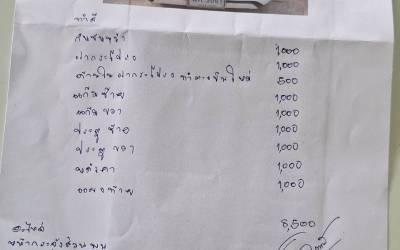 ทำสี
กันชนหน้า 1,000
ฝากระโปรง 1,000
ด้านใน ฝากระโปรง ทำตะเข็บใหม่ 500
แก้มซ้าย 1,000
แก้มขวา 1,000
ประตูซ้าย 1,000
ประตูขวา 1,000
หลังคา 1,000
1,000
8,500
อะไหล่